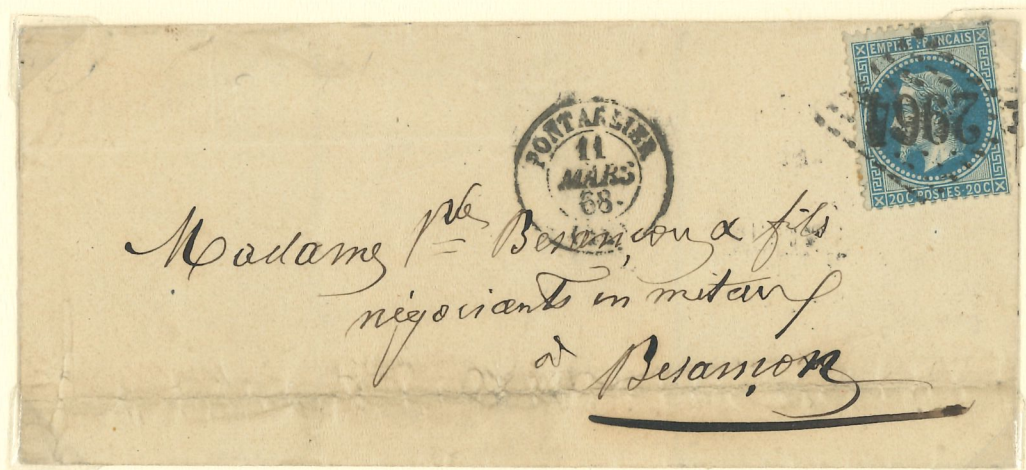 EMPIRE FRANCAIS
2964
20C POSTES 20C
PONTARLIER
11
MARS
68
Madame Vve Besançon & fils
négociants en métaux
à Besançon